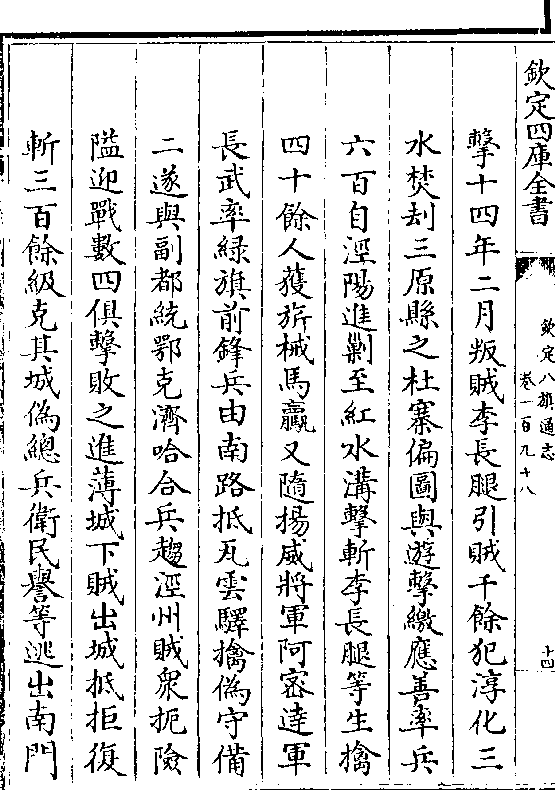 欽定四庫全書
欽定八旗通志
卷一百九十八
十四
擊十四年二月叛賊李長腿引賊千餘犯淳化三
水焚刦三原縣之杜寨偏圖與遊擊繳應善率兵
六百自涇陽進勦至紅水溝擊斬李長腿等生擒
四十餘人獲旂械馬驘又隨揚威將軍阿密達軍
長武率綠旗前鋒兵由南路抵瓦雲驛擒偽守備
二遂與副都統鄂克濟哈合兵趨涇州賊衆扼險
隘迎戰數四俱擊敗之進薄城下賊出城抵拒復
斬三百餘級克其城偽總兵衛民譽等逃出南門